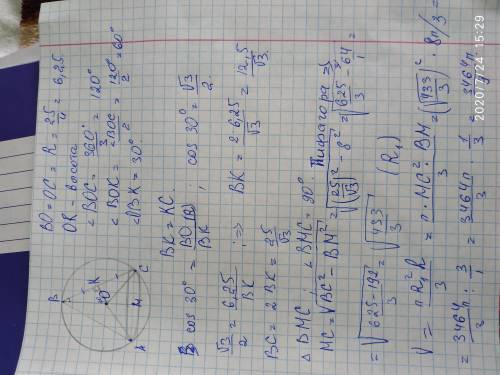 B
K
O
A
M
C
BO = OC = R = 25/4 = 6,25
OR - высота
∠BOC = 360°/3 = 120°
∠BOK = ∠BOC/2 = 120°/2 = 60°
∠OBK = 30°
BK = KC.
cos 30° = BO/BK ; cos 30° = √3/2.
√3/2 = 6,25/BK ; => BK = 2·6,25/√3 = 12,5/√3.
BC = 2BK = 25/√3
△BMC : ∠BMC = 90°. Пифагора =>
MC = √(BC² - BM²) = √((25/√3)² - 8²) = √(625/3 - 64/1) =
= √((625-192)/3) = √(433/3) (R₁)
V = πR₁²R/3 = π·MC²·BM/3 = (√(433/3))² · 8π/3 =
= 3464π/3 : 3/1 = 3464π/3 · 1/3 = 3464π/9
2020/7/24 15:29